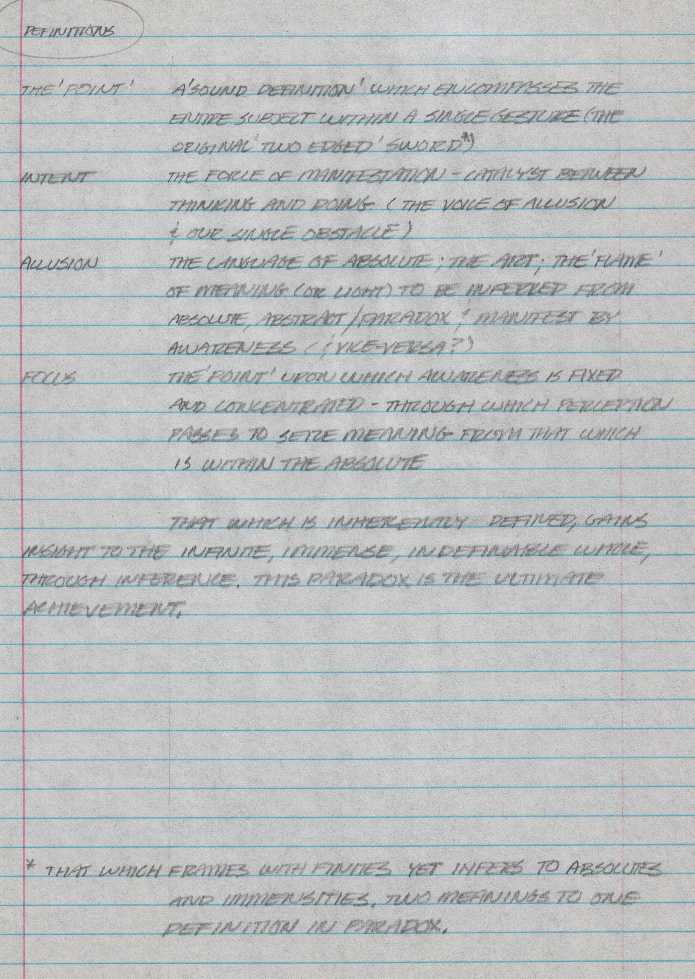 DEFINITIONS
THE 'POINT' A 'SOUND DEFINITION' WHICH ENCOMPASSES THE
ENTIRE SUBJECT WITHIN A SINGLE GESTURE (THE
ORIGINAL 'TWO EDGED' SWORD*)
INTENT THE FORCE OF MANIFESTATION - CATALYST BETWEEN
THINKING AND DOING (THE VOICE OF ALLUSION
& OUR SINGLE OBSTACLE)
ALLUSION THE LANGUAGE OF ABSOLUTE; THE ART; THE 'FLAME'
OF MEANING (OR LIGHT) TO BE INFERRED FROM
ABSOLUTE, ABSTRACT/PARADOX & MANIFEST BY
AWARENESS (& VICE-VERSA?)
FOCUS THE 'POINT' UPON WHICH AWARENESS IS FIXED
AND CONCENTRATED - THROUGH WHICH PERCEPTION
PASSES TO SEIZE MEANING FROM THAT WHICH
IS WITHIN THE ABSOLUTE
THAT WHICH IS INHERENTLY DEFINED, GAINS
INSIGHT TO THE INFINITE, IMMENSE, INDEFINABLE WHOLE,
THROUGH INFERENCE. THIS PARADOX IS THE ULTIMATE
ACHIEVEMENT.
* THAT WHICH FRAMES WITH FINITES YET INFERS TO ABSOLUTES
AND IMMENSITIES. TWO MEANINGS TO ONE
DEFINITION IN PARADOX.